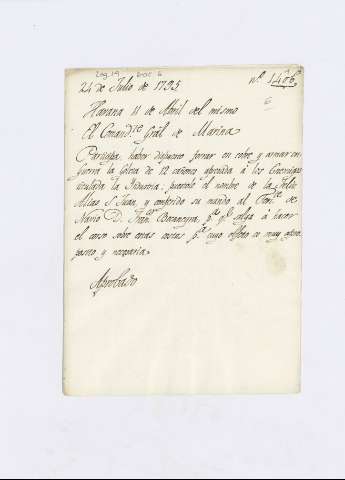 Leg. 19 doc 6
24 de Julio de 1795. n.º 140
6
Havana 11 de Abril del mismo
El Comand.te Gral de Marina
Participa haber dispuesto forrar en cobre y armar en
guerra la Goleta de 12 cañones aprendida à los Enemigos
titulada la Industria, puestole el nombre de la Feliz
Alias S. Juan, y conferido su mando al Then.te de
Navio D. Fran.co p.a q.e salga à hacer
el corso sobre estas costas p.a cuyo efecto es muy apro
posito y necesaria.
Aprobado